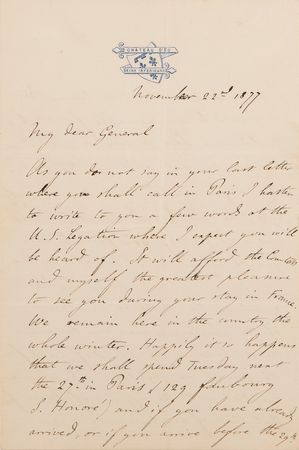 CHATEAU D'EU
SEINE INFERIEURE
November 22d 1877
My dear General
As you do not say in your last letter
where you shall call in Paris I hasten
to write to you a few words at the
U.S. Legation where I expect you will
be heard of. It will afford the Comtesse
and myself the greatest pleasure
to see you during your stay in France.
We remain here in the country the
whole winter. Happily it so happens
that we shall spend Tuesday next
the 27th in Paris (129 faubourg
S. Honoré) and if you have already
arrived, or if you arrive before the 29th